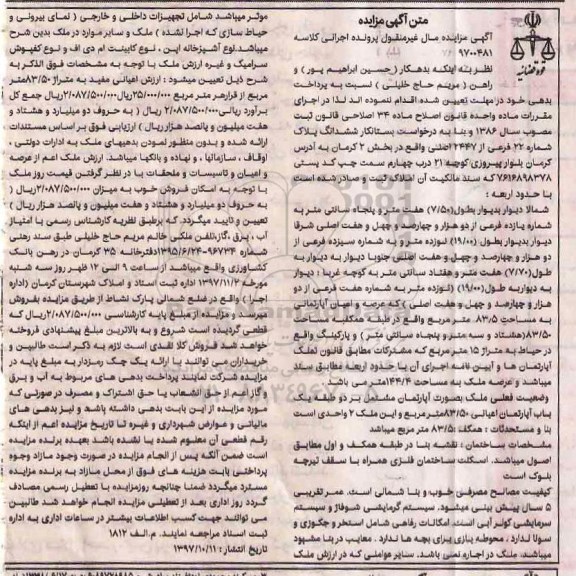 متن آگهی مزایده
آگهی مزایده مال غیرمنقول پرونده اجرائی کلاسه
۹۷۰۰۴۸۱
نظر به اینکه بدهکار (حسین ابراهیم پور) و
راهن (مریم حاج خلیلی) نسبت به پرداخت
بدهی خود در مهلت تعیین شده اقدام ننموده اند لذا در اجرای
مقررات ماده واحده قانون اصلاح ماده ۳۴ اصلاحی قانون ثبت
مصوب سال ۱۳۸۶ و بنا به درخواست بستانکار ششدانگ پلاک
شماره ۲۲ فرعی از ۲۴۴۷ اصلی واقع در بخش ۲ کرمان به آدرس
کرمان بلوار پیروزی کوچه ۲۱ درب چهارم سمت چپ کد پستی
۷۶۱۶۸۹۸۳۷۸ که سند مالکیت آن املاک ثبت و صادر شده است
با حدود اربعه :
شمالا دیوار بدیوار بطول (۷/۵۰) هفت متر و پنجاه سانتی متر به
شماره یازده فرعی از دو هزار و چهارصد و چهل و هفت اصلی شرقا
دیوار بدیوار بطول (۱۹/۰۰) نوزده متر و به شماره سیزده فرعی از
دو هزار و چهارصد و چهل و هفت اصلی جنوبا دیوار به دیوار به
طول (۷/۷۰) هفت متر و هفتاد سانتی متر به کوچه غربا : دیوار
به دیوار به طول (۱۹/۰۰) نوزده متر به شماره هفت فرعی از دو
هزار و چهارصد و چهل و هفت اصلی) که عرصه و اعیان آپارتمانی
به مساحت ۸۳/۵ متر مربع واقع در طبقه همکف
۸۳/۵۰ (هشتاد و سه متر و پنجاه سانتی متر) و پارکینگ واقع
در حیاط به متراژ ۱۵ متر مربع که مشترکات مطابق قانون تملک
آپارتمان ها و آیین نامه اجرای آن با حدود اربعه مطابق سند
میباشد و عرصه ملک به مساحت ۱۴۴/۴ متر می باشد
وضعیت فعلی ملک بصورت آپارتمان مشتمل بر دو طبقه یک
باب آپارتمان اعیانی ۸۳/۵۰ متر مربع و این ملک ۲ واحدی است
بنا و مستحدثات : همکف ۸۳/۵۰ متر مربع میباشد
مشخصات ساختمان : نقشه بنا در طبقه همکف و اول مطابق
اصول میباشد. اسکلت ساختمان فلزی همراه با سقف تیرچه
بلوک است
کیفیت مصالح مصرفی خوب و بنا شمالی است. عمر تقریبی
۵ سال پیش بینی میشود. سیستم گرمایشی شوفاژ و سیستم
سرمایشی کولر آبی است. امکانات رفاهی شامل استخر و جکوزی و
سونا ندارد . محوطه بازی برای بچه ها ندارد . معایب در بنا مشهود
نمیباشد، ملک در اجاره نمی باشد. سایر عوامل که در ارزش ملک
موثر میباشد شامل تجهیزات داخلی و خارجی ( نمای بیرونی و
حیاط سازی که اجرا نشده ) ملک و سایر موارد در ملک بدین شرح
میباشد.نوع آشپزخانه اپن . نوع کابینت ام دی اف و نوع کفپوش
سرامیک و غیره ارزش ملک با توجه به مشخصات فوق الذکر به
شرح ذیل تعیین میشود : ارزش اعیانی مفید به متراژ ۸۳/۵۰متر
مربع از قرارهر متر مربع ۲۵/۰۰۰/۰۰۰ریال جمع کل
برآورد ریالی۲/۰۸۷/۵۰۰/۰۰۰ ریال ( به حروف دو میلیارد و هشتاد و
هفت میلیون و پانصد هزارریال ) ارزیابی فوق بر اساس مستندات
ارائه شده و بدون منظور نمودن بدهیهای ملک به ادارات دولتی ،
اوقاف ، سازمانها ، و نهاده و بانکها میباشد. ارزش ملک اعم از عرصه
و اعیان و تاسیسات و ملحقات با در نظر گرفتن قیمت روز ملک
با توجه به امکان فروش خوب به میزان ۲/۰۸۷/۵۰۰/۰۰۰ریال (
به حروف دو میلیارد و هشتاد و هفت میلیون و پانصد هزار ریال )
تعیین و تایید میگردد. که برطبق نظریه کارشناس رسمی با امتیاز
آب ، برق ،گاز،تلفن ملکی خانم مریم حاج خلیلی طبق سند رهنی
شماره ۹۶۷۳۴-۱۳۹۵/۶/۲۴دفترخانه ۳۵ کرمان در رهن بانک
کشاورزی واقع میباشد از ساعت ۹ الی ۱۲ ظهر روز سه شنبه
مورخه ۱۳۹۷/۱۱/۲ اداره ثبت اسناد و املاک شهرستان کرمان (اداره
اجرا ) واقع در ضلع شمالی پارک نشاط از طریق مزایده بفروش
میرسد . مزایده از مبلغ پایه کارشناسی ۲/۰۸۷/۵۰۰/۰۰۰ریال که
قطعی گردیده است شروع و به بالاترین مبلغ پیشنهادی فروخته
خواهد شد فروش کلا نقدی است لازم به ذکر است طالبین و
خریداران می توانند با ارائه یک چک رمزدار به مبلغ پایه در
مزایده شرکت نمایند پرداخت بدهی های مربوط به آب و برق
و گاز اعم از حق انشعاب یا حق اشتراک و مصرف در صورتی که
مورد مزایده از این بابت بدهی داشته باشد و نیز بدهی های
مالیاتی و عوارض شهرداری و غیره تا تاریخ مزایده اعم از اینکه
رقم قطعی آن معلوم شده یا نشده باشد بعهده برنده مزایده
است ضمن آنکه پس از انجام مزایده در صورت وجود مازاد وجوه
پرداختی بابت هزینه های فوق از محل مازاد به برنده مزایده
مسترد میگردد ضمنا چنانچه روزمزایده با تعطیل رسمی مصادف
گردد روز اداری بعد از تعطیلی مزایده انجام خواهد شد طالبین
می توانند جهت کسب اطلاعات بیشتر در ساعات اداری به اداره
ثبت اسناد مراجعه نمایند. م.الف ۱۸۱۲
تاریخ انتشار : ۱۳۹۷/۱۰/۱۱